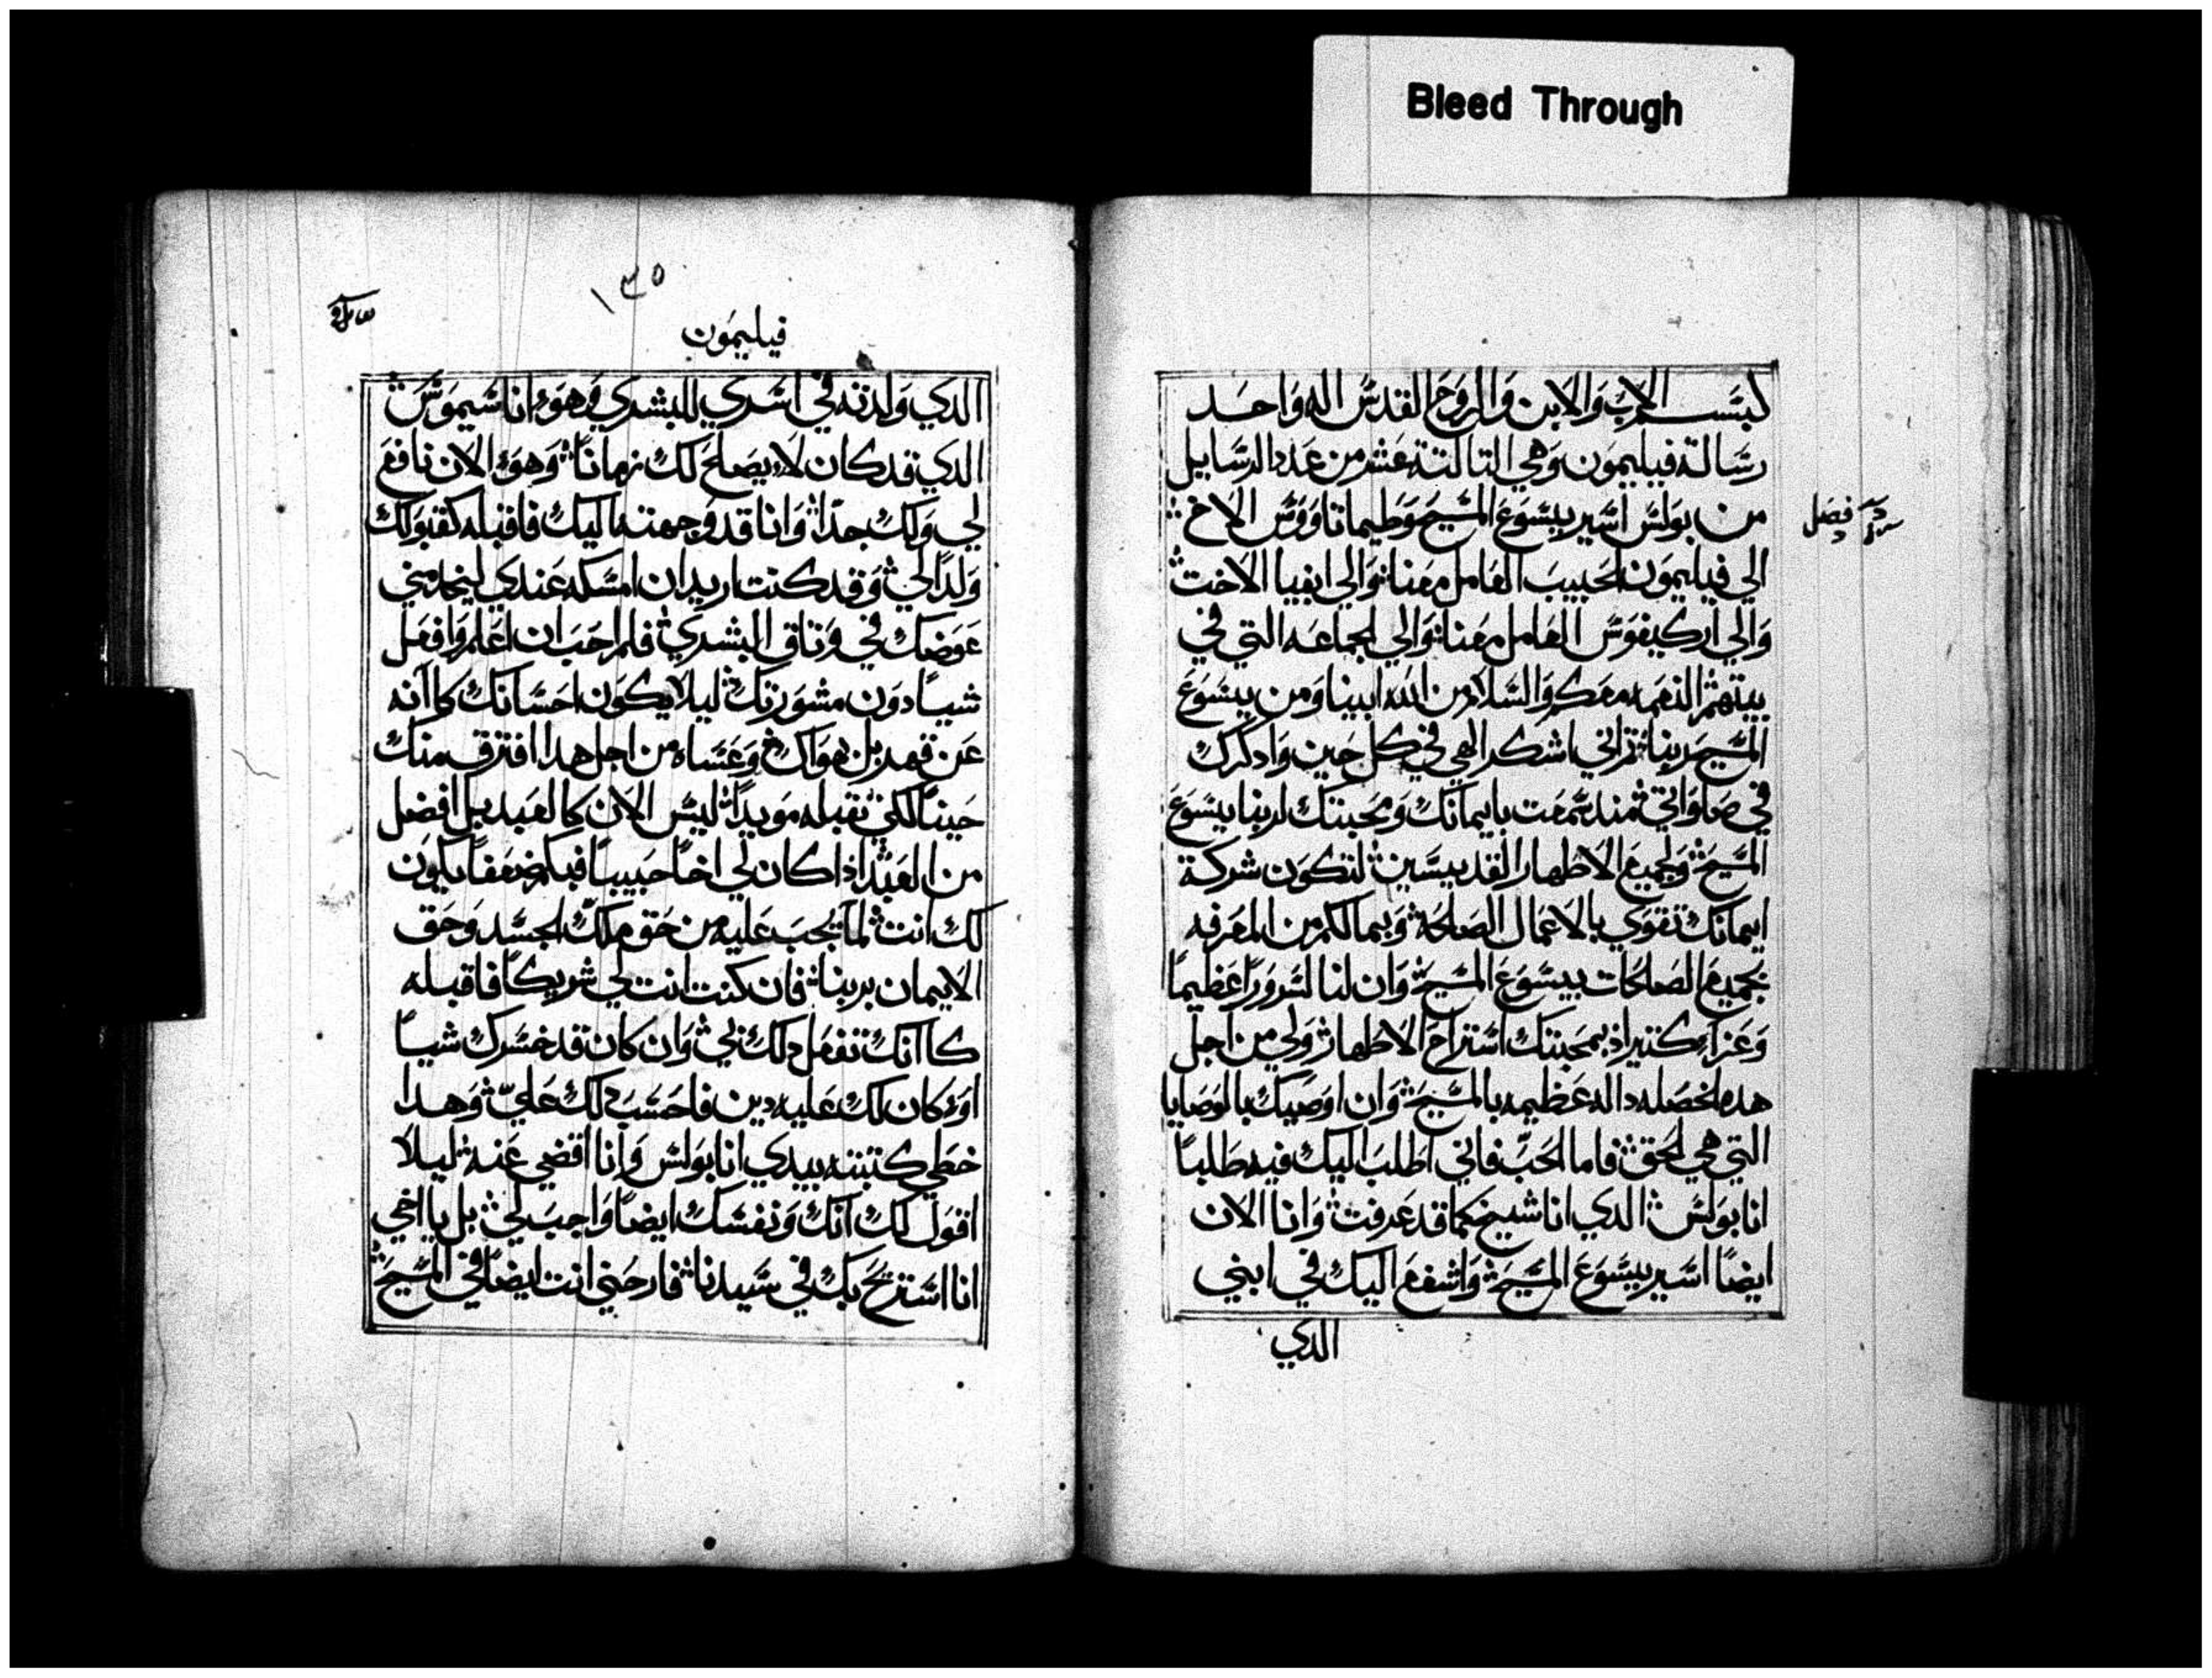 Bleed Through
بسم الاب والابن والروح القدس اله واحد
رسالة فيليمون وهي التالتة عشر من عدد الرسايل
من بولس اسير يسوع المسيح وطيماتاووس الاخ
فصل
الي فيليمون الحبيب العامل معنا والي ابفيا الاخت
والي اركيفوس العامل معنا والي الجماعه التي في
بيتهم النعمه معكم والسلام من الله ابينا ومن يسوع
المسيح ربنا ثم اني اشكر الهي في كل حين وادكرك
في صلواتي مند سمعت بايمانك ومحبتك لربنا يسوع
المسيح ولجميع الاطهار القديسين لتكون شركة
ايمانك تقوي بالاعمال الصالحه وبما لكم من المعرفه
بجميع الصالحات بيسوع المسيح وان لنا لسرورا عظيما
وعزاء كتير اذ بمحبتك استراح الاطهار ولي من اجل
هده الخصله داله عظيمه بالمسيح وان اوصيك بالوصايا
التي هي الحق فاما الحب فاني اطلب اليك فيه طلبا
انا بولس الدي انا شيخ كما قد عرفت وانا الان
ايضا اسير يسوع المسيح واشفع اليك في ابني
الدي
١٣٥
فيليمون
الدي ولدته في اسري للبشري وهو اناسيموس
الدي قد كان لا يصلح لك زمانا وهو الان نافع
لي ولك جدا وانا قد وجهته اليك فاقبله كقبولك
ولدا لي وقد كنت اريد ان امسكه عندي ليخدمني
عوضك في وتاق البشري فلم احب ان اعلم وافعل
شيا دون مشورتك ليلا يكون احسانك كا انه
عن قهر بل بهواك وعساه من اجل هدا افترق منك
حينا لكي تقبله موبدا ليس الان كالعبد بل افضل
من العبد اذا كان لي اخا حبيبا فبكم ضعفا يكون
لك انت لما يجب عليه من حق ملك الجسد وحق
الايمان بربنا فان كنت انت لي شريكا فاقبله
كا انك تفعل دلك بي وان كان قد خسرك شيا
او كان لك عليه دين فاحسب دلك علي وهدا
خطي كتبته بيدي انا بولس وانا اقضي عنه ليلا
اقول لك انك ونفسك ايضا واجب لي بل يا اخي
انا استريح بك في سيدنا فارحني انت ايضا في المسيح